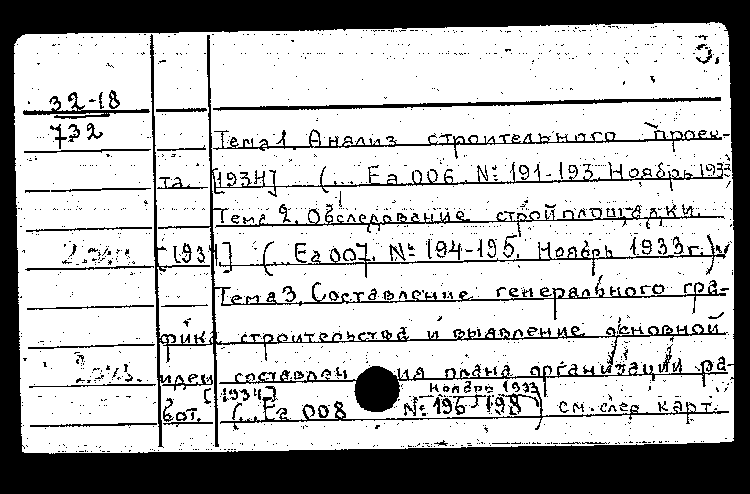 5.
32-18
732
Тема 1. Анализ строительного проек-
та. [1934] (... Еа 006. №: 191-193. Ноябрь 1933
Тема 2. Обследование стройплощадки.
2 экз. [1934.] (... Еа 007. №: 194-195. Ноябрь 1933 г.)
Тема 3. Составление генерального гра-
фика строительства и выявление основной
идеи составлен ия плана организации ра-
[1934] Ноябрь 1933
бот. (... Еа 008 №: 196-198) см. след карт.